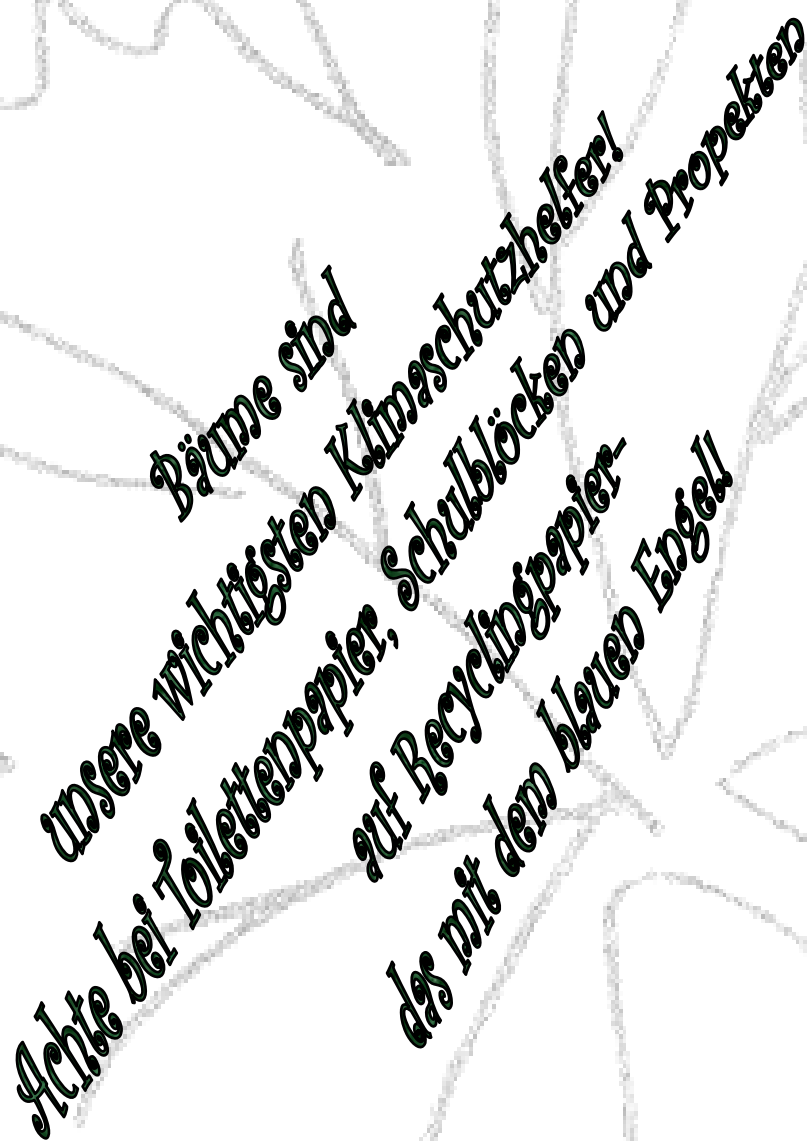 Bäume sind
unsere wichtigsten Klimaschutzhelfer!
Achte bei Toilettenpapier, Schulblöcken und Propekten
auf Recyclingpapier-
das mit dem blauen Engel!